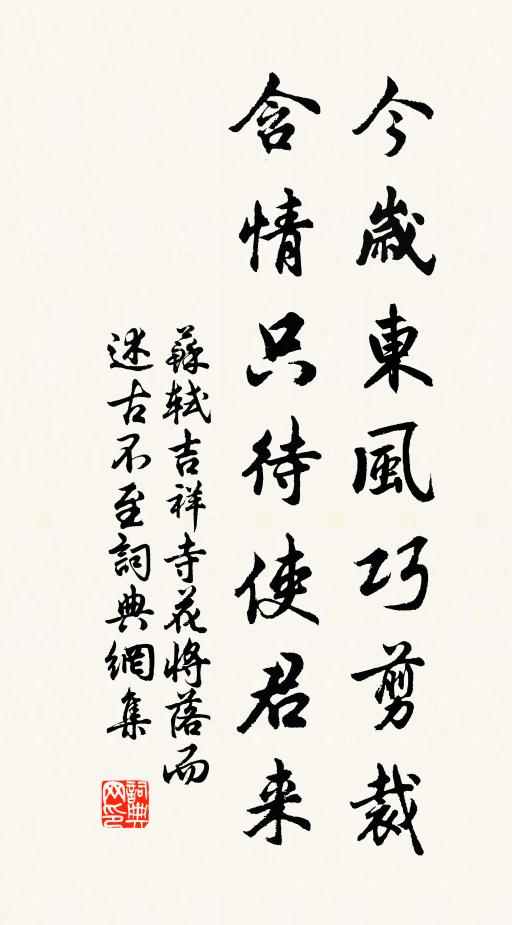 今歲東風巧剪裁
含情只待使君来
蘇軾吉祥寺花將落而
述古不至詞典網集
詞典网印